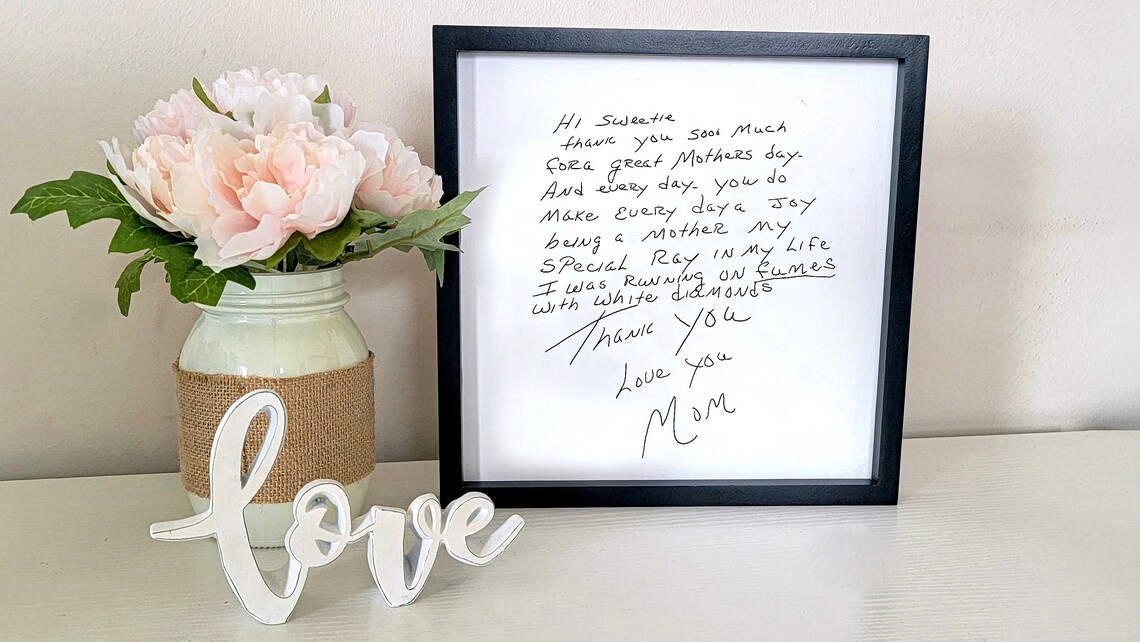 Hi Sweetie
thank you sooo Much
for a great Mothers day-
And every day- you do
Make Every day a Joy
being a Mother My
Special Ray in My Life
I was Running on fumes
with white diamonds
Thank You
Love You
Mom
love